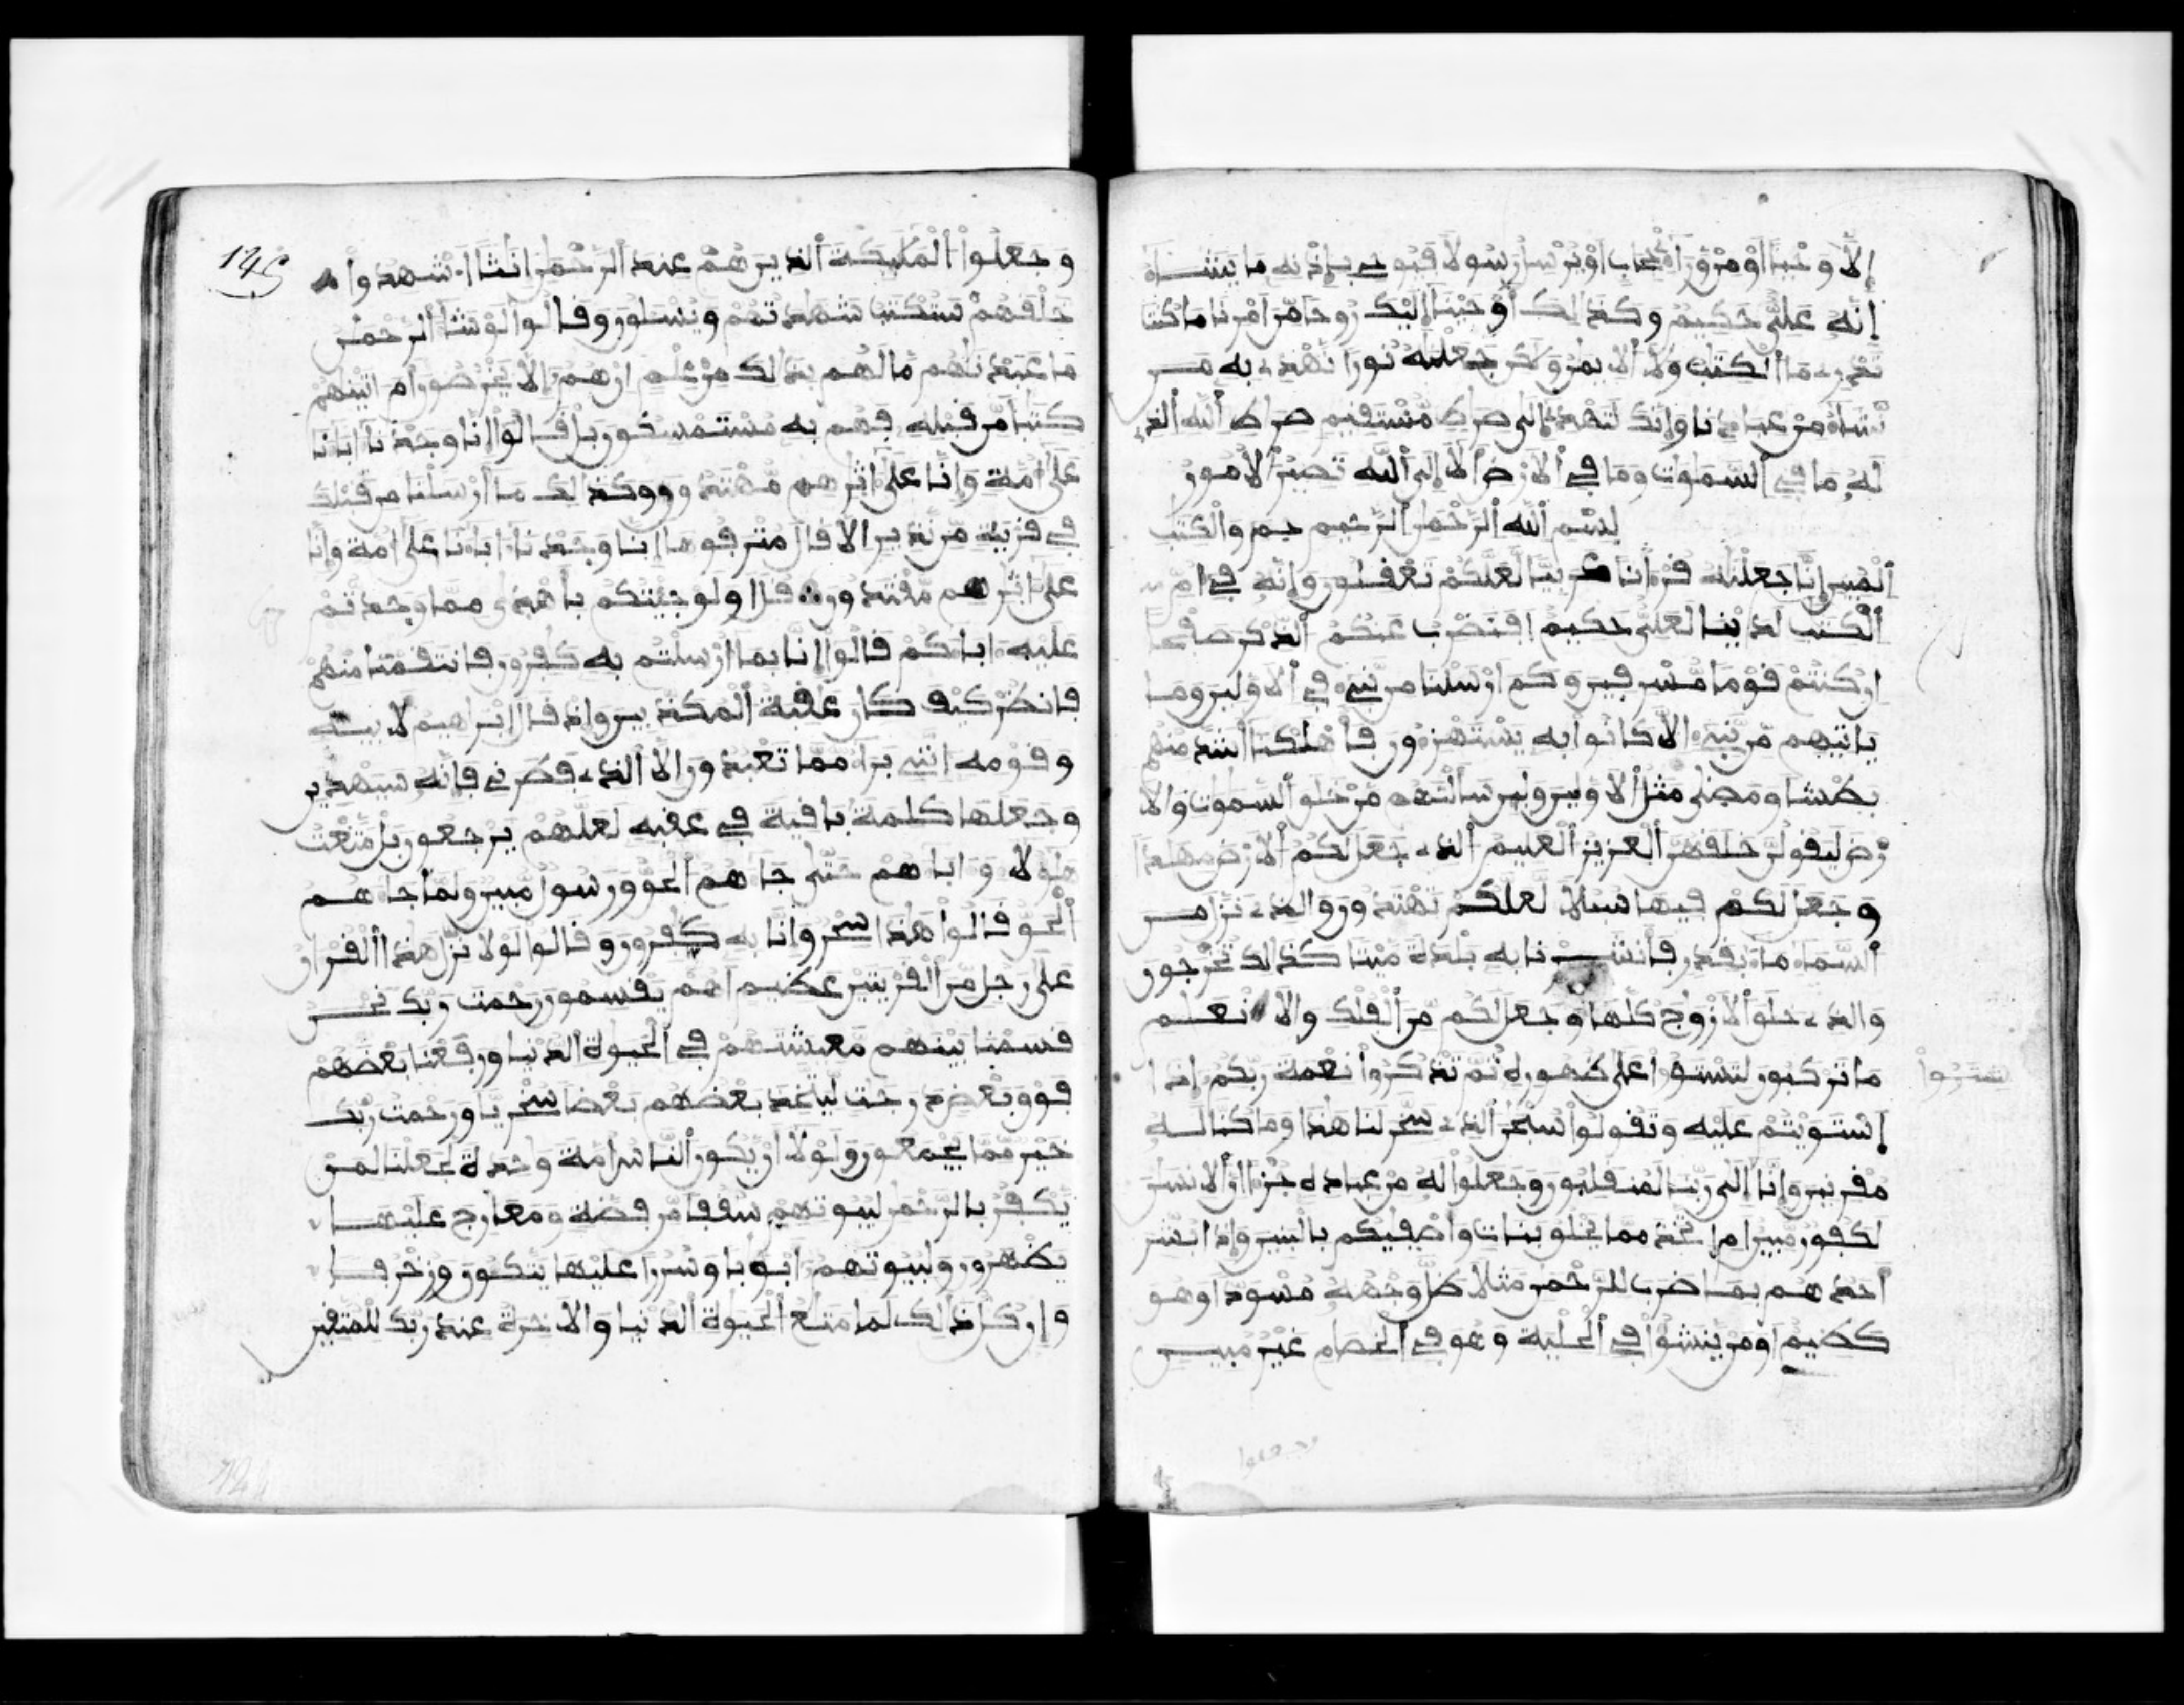 إلا وحيا أو من وراء حجاب أو يرسل رسولا فيوحي بإذنه ما يشاء
إنه علي حكيم وكذلك أوحينا إليك روحا من أمرنا ما كنت
تدري ما الكتب ولا الايمن ولكن جعلنه نورا نهدي به من
نشاء من عبادنا وإنك لتهدي إلى صرط مستقيم صرط الله الذي
له ما في السموت وما في الارض ألا إلى الله تصير الامور
بسم الله الرحمن الرحيم حم والكتب
المبين إنا جعلنه قرءنا عربيا لعلكم تعقلون وإنه في أم
الكتب لدينا لعلي حكيم افنضرب عنكم الذكر صفحا
إن كنتم قوما مسرفين وكم أرسلنا من نبيء في الاولين وما
ياتيهم من نبيء الا كانوا به يستهزءون فأهلكنا أشد منهم
بطشا ومضى مثل الاولين ولين سألتهم من خلق السموت والا
رض ليقولن خلقهن العزيز العليم الذي جعل لكم الارض مهدا
وجعل لكم فيها سبلا لعلكم تهتدون والذي نزل من
السماء ماء بقدر فأنشرنا به بلدة ميتا كذلك تخرجون
والذي خلق الازوج كلها وجعل لكم من الفلك والانعم
ما تركبون لتستوا على ظهوره ثم تذكروا نعمة ربكم إذا
إستويتم عليه وتقولوا سبحن الذي سخر لنا هذا وما كنا له
مقرنين وإنا إلى ربنا لمنقلبون وجعلوا له من عباده جزءا إن الانسن
لكفور مبين ام اتخذ مما يخلق بنات واصفيكم بالبنين وإذا بشر
أحدهم بما ضرب للرحمن مثلا ظل وجهه مسودا وهو
كظيم أومن ينشؤا في الحلية وهو في الخصام غير مبين
145
وجعلوا المليكة الذين هم عند الرحمن انثا أ.شهدوا
خلقهم ستكتب شهدتهم ويسلون وقالوا لو شا الرحمن
ما عبدنهم ما لهم بذلك من علم إن هم إلا يخرصون أم اتينهم
كتبا من قبله فهم به مستمسكون بل قالوا إنا وجدنا ابانا
على أمة وإنا على اثرهم مهتدون وكذلك ما أرسلنا من قبلك
في قرية من نذير الا قال مترفوها إنا وجدنا اباءنا على أمة وإنا
على اثرهم مقتدون قل اولو جيتكم بأهدى مما وجدتم
عليه اباكم قالوا إنا بما أرسلتم به كفرون فانتقمنا منهم
فانظر كيف كان عقبة المكذبين وإذ قال إبرهيم لابيه
وقومه انني براء مما تعبدون إلا الذي فطرني فإنه سيهدين
وجعلها كلمة باقية في عقبه لعلهم يرجعون بل متعت
هؤلا واباهم حتى جاهم الحق ورسول مبين ولما جاهم
الحق قالوا هذا سحر وإنا به كفرون وقالوا لولا نزل هذا القران
على رجل من القريتين عظيم اهم يقسمون رحمت ربك نحن
قسمنا بينهم معيشتهم في الحيوة الدنيا ورفعنا بعضهم
فوق بعض درجت ليتخذ بعضهم بعضا سخريا ورحمت ربك
خير مما يجمعون ولولا أن يكون الناس أمة وحدة لجعلنا لمن
يكفر بالرحمن لبيوتهم سقفا من فضة ومعارج عليها
يظهرون ولبيوتهم أبوبا وسررا عليها يتكون وزخرفا
وإن كل ذلك لما متع الحيوة الدنيا والاخرة عند ربك للمتقين